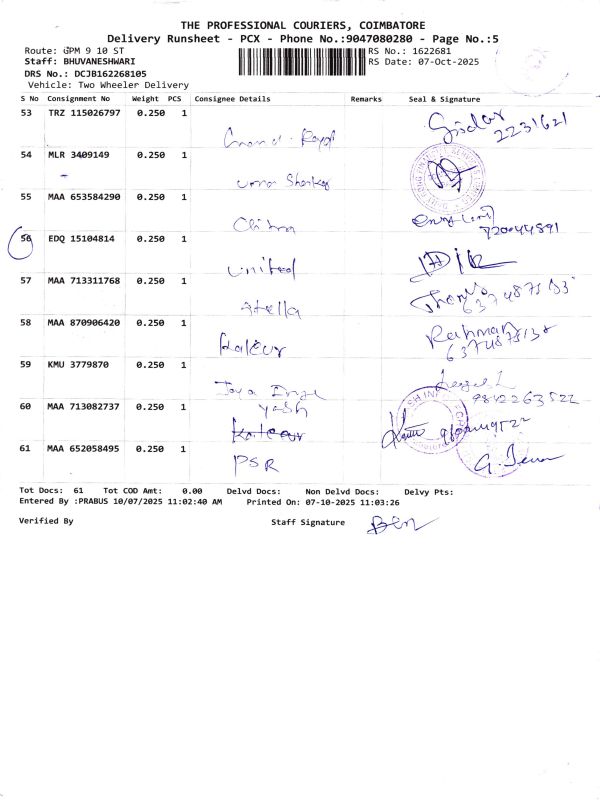 THE PROFESSIONAL COURIERS, COIMBATORE
Delivery Runsheet - PCX - Phone No.:9047080280 - Page No.:5
Route: GPM 9 10 ST
RS No.: 1622681
Staff: BHUVANESHWARI
RS Date: 07-Oct-2025
DRS No.: DCJB162268105
Vehicle: Two Wheeler Delivery
S No Consignment No Weight PCS Consignee Details Remarks Seal & Signature
53 TRZ 115026797 0.250 1
2231621
54 MLR 3409149 0.250 1
55 MAA 653584290 0.250 1
Chitra
56 EDQ 15104814 0.250 1
United
57 MAA 713311768 0.250 1
Stella
58 MAA 870906420 0.250 1
Rahman
59 KMU 3779870 0.250 1
Jaya
9842263522
60 MAA 713082737 0.250 1
Yash
61 MAA 652058495 0.250 1
PSR
Tot Docs: 61 Tot COD Amt: 0.00 Delvd Docs: Non Delvd Docs: Delvy Pts:
Entered By :PRABUS 10/07/2025 11:02:40 AM Printed On: 07-10-2025 11:03:26
Verified By Staff Signature